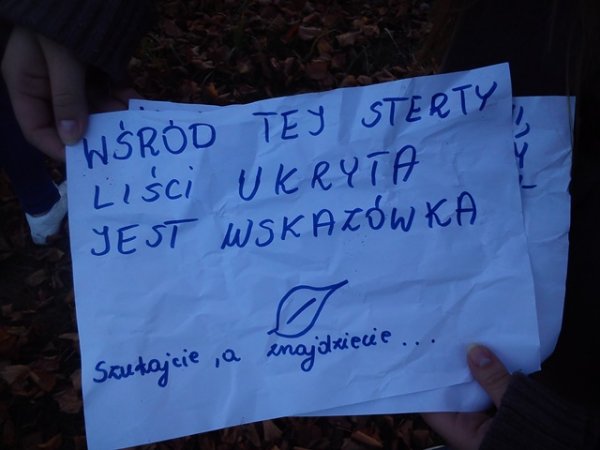 WŚRÓD TEJ STERTY
LIŚCI UKRYTA
JEST WSKAZÓWKA
Szukajcie, a znajdziecie...